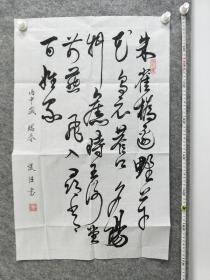 朱雀橋邊野草
花烏衣巷口夕陽
斜舊時王謝堂
前燕飛入尋常
百姓家
丙申歲
書